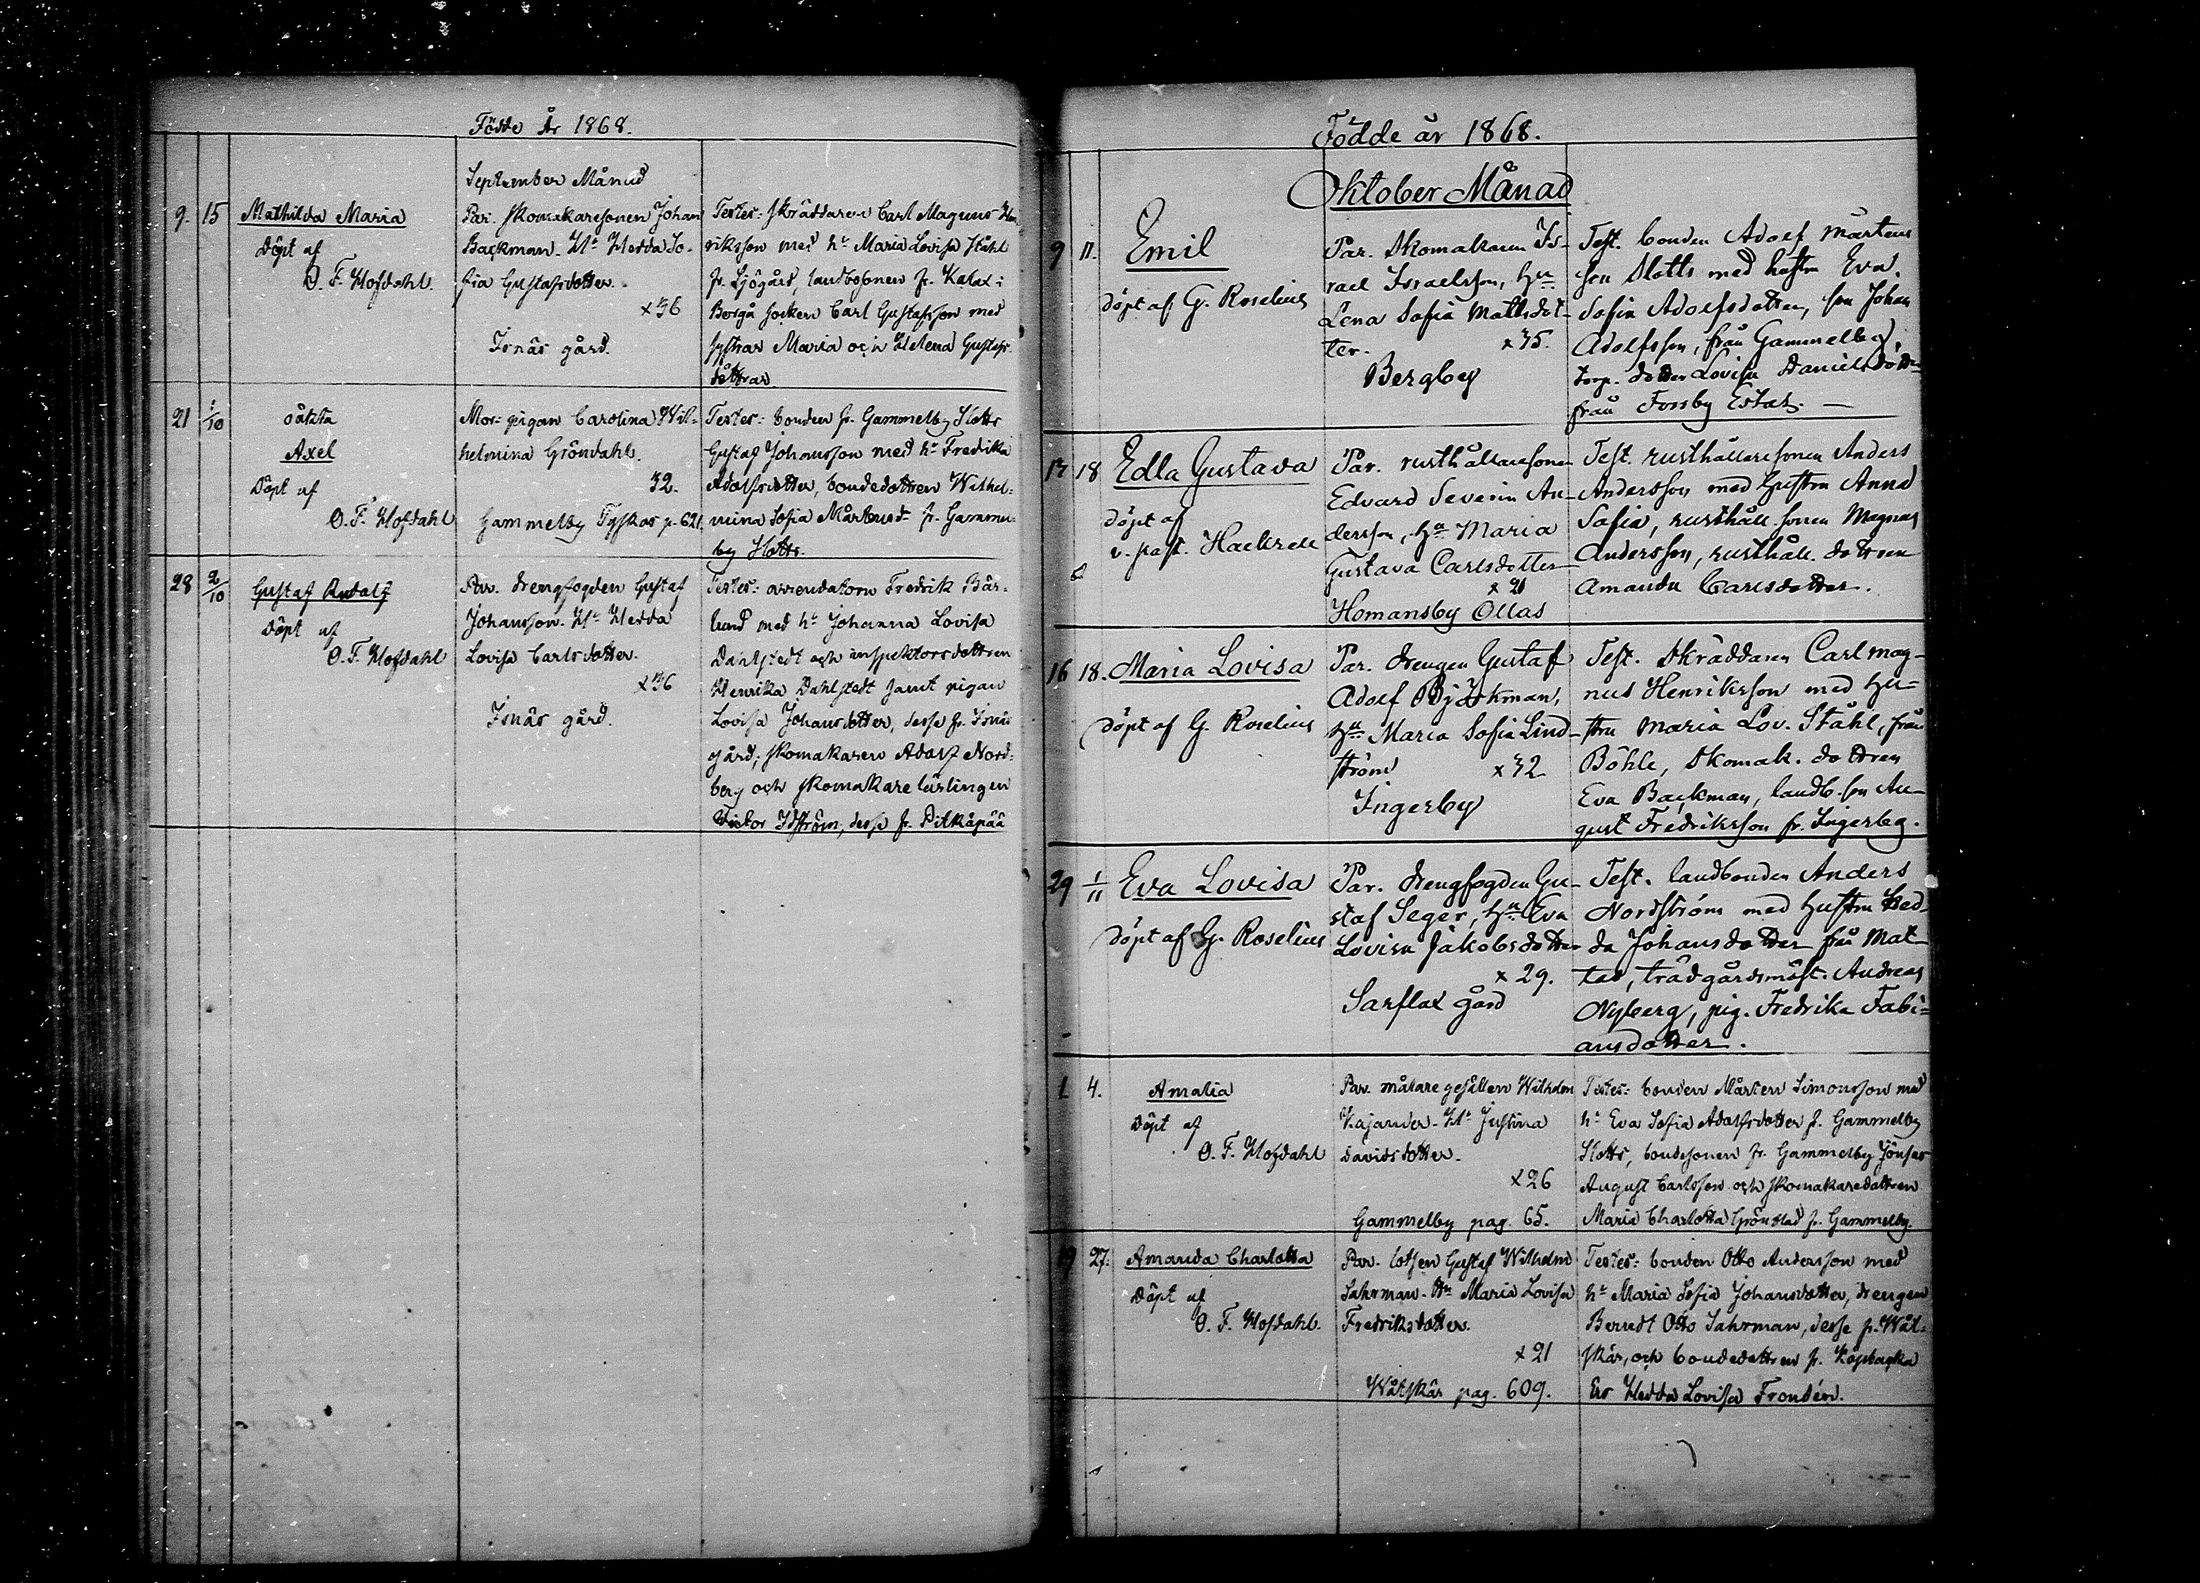 Födde År 1868.
September Månad
9. 15 Mathilda Maria
Döpt af
O. F. Hofdahl.
Par. skomakaresonen Johan
Backman. Hu Hedda So-
fia Gustafsdotter.
x 36
Isnäs gård.
Testes: skräddaren Carl Magnus Hen
riksson med hu Maria Lovisa Ståhl
fr. Sjögård, landbosonen fr. Kalax i
Borgå socken Carl Gustafsson med
systrar Maria och Helena Gustafs-
döttrar
21 1/10 oäkta
Axel
Döpt af
O. F. Hofdahl
Mor: pigan Carolina Wil-
helmina Gröndahl.
32.
Gammelby Tyskas p. 621
Testes: bonden fr. Gammelby Slotts
Gustaf Johansson med hu Fredrika
Adolfsdotter, bondedottren Wilhel-
mina Sofia Mårtensd. fr. Gammel
by Slotts.
28 2/10 Gustaf Rudolf
Döpt af
O. F. Hofdahl
Par. drengfogden Gustaf
Johansson. Hu Hedda
Lovisa Carlsdotter.
x 36
Isnäs gård.
Testes: arrendatorn Fredrik Bär-
lund med hu Johanna Lovisa
Dahlstedt och inspektorsdottren
Henrika Dahlstedt samt pigan
Lovisa Johansdotter, desse fr. Isnäs
gård; skomakaren Adolf Nord-
berg och skomakare lärlingen
Victor Idström, desse fr. Pitkäpää
Födde år 1868.
Oktober Månad
9 11. Emil
döpt af G. Roselius
Par. Skomakaren Is-
rael Israelsson, Hu
Lena Sofia Mattsdot-
ter. x 35.
Bergby
Test. bonden Adolf Mårtens
son Slotts med hustru Eva
Sofia Adolfsdotter, son Johan
Adolfsson, från Gammelby,
torp. dotter Lovisa Danielsdotter
från Forsby Estas. —
13 18 Edla Gustava
döpt af
v. past. Hackzell
Par. rusthållaresonen
Edvard Severin An-
dersson, Hu Maria
Gustava Carlsdotter
x 21
Homansby Ollas
Test. rusthållaresonen Anders
Andersson med hustru Anna
Sofia, rusthåll. sonen Magnus
Andersson, rusthåll. dottren
Amanda Carlsdotter.
16 18. Maria Lovisa
döpt af G. Roselius
Par. drengen Gustaf
Adolf Björkman,
Hu Maria Sofia Lind-
ström x 32
Ingerby
Test. Skräddaren Carl Mag-
nus Henriksson med Hu-
stru Maria Lov. Ståhl, från
Böhle, Skomak. dottren
Eva Backman, landb. son Au-
gust Fredriksson fr. Ingerby.
29 1/11 Eva Lovisa
döpt af G. Roselius
Par. drengfogden Gu-
staf Seger, Hu Eva
Lovisa Jakobsdotter
x 29.
Sarflax gård
Test. landbonden Anders
Nordström med Hustru Hed-
da Johansdotter från Mat-
tas, trädgårdsmäst. Andreas
Nyberg, pig. Fredrika Fabi-
ansdotter.
1 4. Amalia
Döpt af
O. F. Hofdahl
Par. målare gesällen Wilhelm
Kajander. Hu Justina
Davidsdotter.
x 26
Gammelby pag. 65.
Testes: bonden Mårten Simonsson med
hu Eva Sofia Adolfsdotter fr. Gammelby
Slotts, bondesonen fr. Gammelby Jönsas
August Carlsson och skomakaredottren
Maria Charlotta Grönblad fr. Gammelby.
19 27. Amanda Charlotta
Döpt af
O. F. Hofdahl.
Par. lotsen Gustaf Wilhelm
Sahrman. Hu Maria Lovisa
Fredriksdotter.
x 21
Wåtskär pag. 609.
Testes: bonden Otto Andersson med
hu Maria Sofia Johansdotter, drengen
Berndt Otto Sahrman, desse fr. Wåt-
skär, och bondedottren fr. Kopbacka
Ers Hedda Lovisa Frondén.